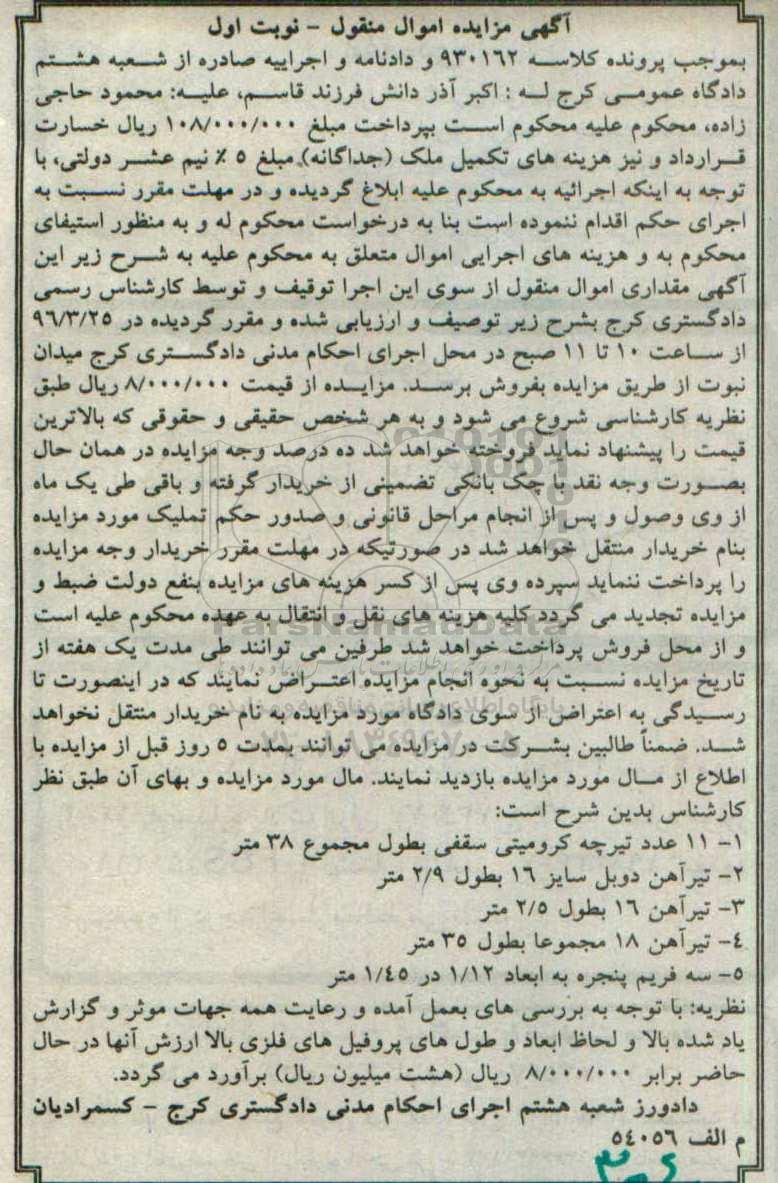 آگهی مزایده اموال منقول - نوبت اول
بموجب پرونده کلاسه ۹۳۰۱۶۲ و دادنامه و اجراییه صادره از شعبه هشتم
دادگاه عمومی کرج له : اکبر آذر دانش فرزند قاسم، علیه: محمود حاجی
زاده، محکوم علیه محکوم است بپرداخت مبلغ ۱۰۸/۰۰۰/۰۰۰ ریال خسارت
قرارداد و نیز هزینه های تکمیل ملک (جداگانه) مبلغ ۵ ٪ نیم عشر دولتی، با
توجه به اینکه اجرائیه به محکوم علیه ابلاغ گردیده و در مهلت مقرر نسبت به
اجرای حکم اقدام ننموده است بنا به درخواست محکوم له و به منظور استیفای
محکوم به و هزینه های اجرایی اموال متعلق به محکوم علیه به شرح زیر این
آگهی مقداری اموال منقول از سوی این اجرا توقیف و توسط کارشناس رسمی
دادگستری کرج بشرح زیر توصیف و ارزیابی شده و مقرر گردیده در ۹۶/۳/۲۵
از ساعت ۱۰ تا ۱۱ صبح در محل اجرای احکام مدنی دادگستری کرج میدان
نبوت از طریق مزایده بفروش برسد. مزایده از قیمت ۸/۰۰۰/۰۰۰ ریال طبق
نظریه کارشناسی شروع می شود و به هر شخص حقیقی و حقوقی که بالاترین
قیمت را پیشنهاد نماید فروخته خواهد شد ده درصد وجه مزایده در همان حال
بصورت وجه نقد یا چک بانکی تضمینی از خریدار گرفته و باقی طی یک ماه
از وی وصول و پس از انجام مراحل قانونی و صدور حکم تملیک مورد مزایده
بنام خریدار منتقل خواهد شد در صورتیکه در مهلت مقرر خریدار وجه مزایده
را پرداخت ننماید سپرده وی پس از کسر هزینه های مزایده بنفع دولت ضبط و
مزایده تجدید می گردد کلیه هزینه های نقل و انتقال به عهده محکوم علیه است
و از محل فروش پرداخت خواهد شد طرفین می توانند طی مدت یک هفته از
تاریخ مزایده نسبت به نحوه انجام مزایده اعتراض نمایند که در اینصورت تا
رسیدگی به اعتراض از سوی دادگاه مورد مزایده به نام خریدار منتقل نخواهد
شد. ضمناً طالبین بشرکت در مزایده می توانند بمدت ۵ روز قبل از مزایده با
اطلاع از مال مورد مزایده بازدید نمایند. مال مورد مزایده و بهای آن طبق نظر
کارشناس بدین شرح است:
۱- ۱۱ عدد تیرچه کرومیتی سقفی بطول مجموع ۳۸ متر
۲- تیرآهن دوبل سایز ۱۶ بطول ۲/۹ متر
۳- تیرآهن ۱۶ بطول ۲/۵ متر
۴- تیرآهن ۱۸ مجموعا بطول ۳۵ متر
۵- سه فریم پنجره به ابعاد ۱/۱۲ در ۱/۴۵ متر
نظریه: با توجه به بررسی های بعمل آمده و رعایت همه جهات موثر و گزارش
یاد شده بالا و لحاظ ابعاد و طول های پروفیل های فلزی بالا ارزش آنها در حال
حاضر برابر ۸/۰۰۰/۰۰۰ ریال (هشت میلیون ریال) برآورد می گردد.
دادورز شعبه هشتم اجرای احکام مدنی دادگستری کرج - کسمرادیان
م الف ۵۴۰۵۶